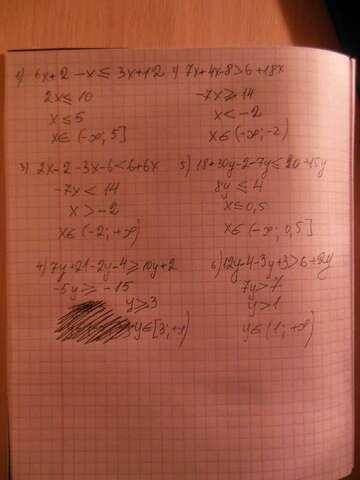 1) 6x+2-x≤3x+12
2x≤10
x≤5
x∈(-∞; 5]
2) 7x+4x-8>6+18x
-7x≥14
x<-2
x∈(-∞;-2)
3) 2x-2-3x-6<6+6x
-7x<14
x>-2
x∈(-2;+∞)
5) 18+30y-2-7y≤20+15y
8y≤4
x≤0,5
x∈(-∞; 0,5]
4) 7y+21-2y-4≥10y+2
-5y≥-15
y≥3
y∈[3;+∞)
6) 12y-4-3y+3>6+2y
7y>7
y>1
y∈(1;+∞)